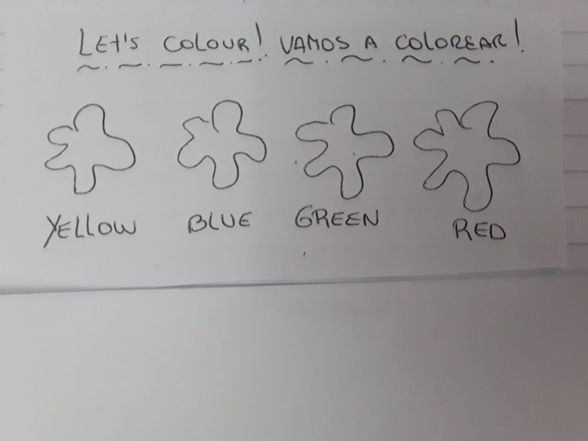 LET'S COLOUR! VAMOS A COLOREAR!
YELLOW BLUE GREEN RED